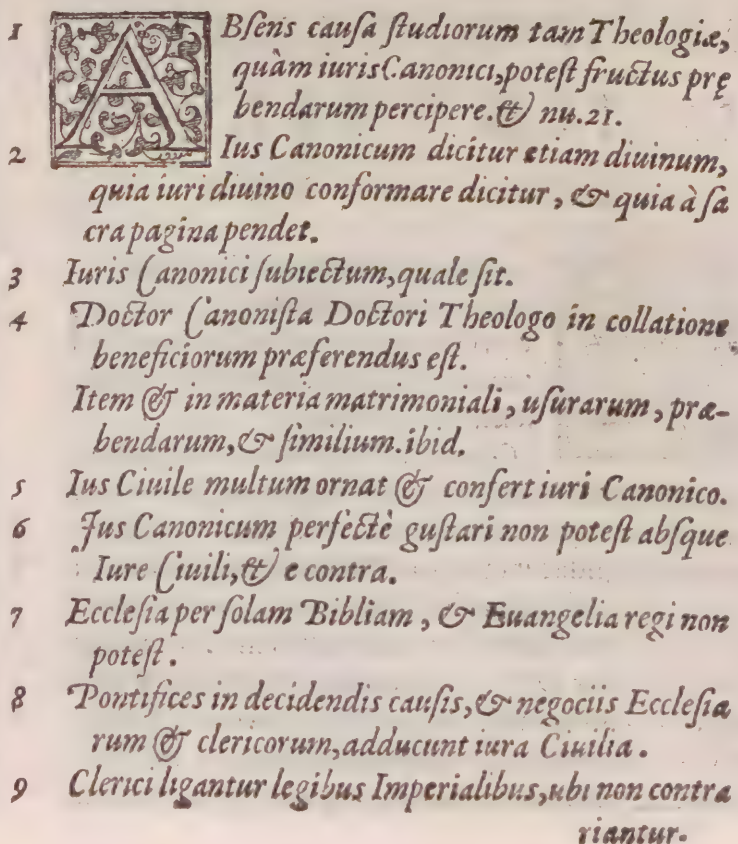 1 ABſens cauſa ſtudiorum tam Theologiæ,
quàm iuris Canonici, poteſt fructus prę
bendarum percipere. & nu. 21.
2 Ius Canonicum dicitur etiam diuinum,
quia iuri diuino conformare dicitur, & quia à ſa
cra pagina pendet.
3 Iuris Canonici ſubiectum, quale ſit.
4 Doctor Canoniſta Doctori Theologo in collatione
beneficiorum præferendus eſt.
Item & in materia matrimoniali, uſurarum, præ-
bendarum, & ſimilium. ibid.
5 Ius Ciuile multum ornat & confert iuri Canonico.
6 Ius Canonicum perfectè guſtari non poteſt abſque
Iure Ciuili, & e contra.
7 Eccleſia per ſolam Bibliam, & Euangelia regi non
poteſt.
8 Pontifices in decidendis cauſis, & negociis Eccleſia
rum & clericorum, adducunt iura Ciuilia.
9 Clerici ligantur legibus Imperialibus, ubi non contra
riantur.